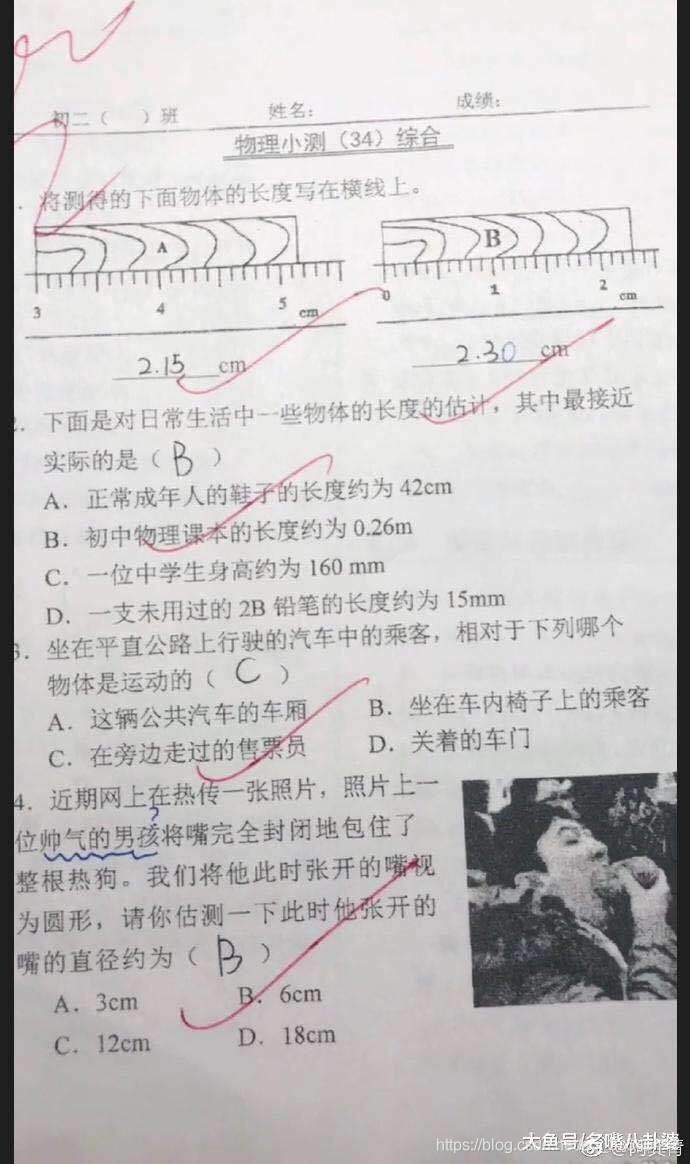 初二（ ）班 姓名： 成绩：
物理小测（34）综合
. 将测得的下面物体的长度写在横线上。
A B
3 4 5 cm 0 1 2 cm
2.15 cm 2.30 cm
2. 下面是对日常生活中一些物体的长度的估计，其中最接近
实际的是（ B ）
A．正常成年人的鞋子的长度约为 42cm
B．初中物理课本的长度约为 0.26m
C．一位中学生身高约为 160 mm
D．一支未用过的 2B 铅笔的长度约为 15mm
3. 坐在平直公路上行驶的汽车中的乘客，相对于下列哪个
物体是运动的（ C ）
A．这辆公共汽车的车厢 B．坐在车内椅子上的乘客
C．在旁边走过的售票员 D．关着的车门
4. 近期网上在热传一张照片，照片上一
?
位帅气的男孩将嘴完全封闭地包住了
整根热狗。我们将他此时张开的嘴视
为圆形，请你估测一下此时他张开的
嘴的直径约为（ B ）
A．3cm B．6cm
C．12cm D．18cm
大鱼号/名嘴八卦婆
https://blog.